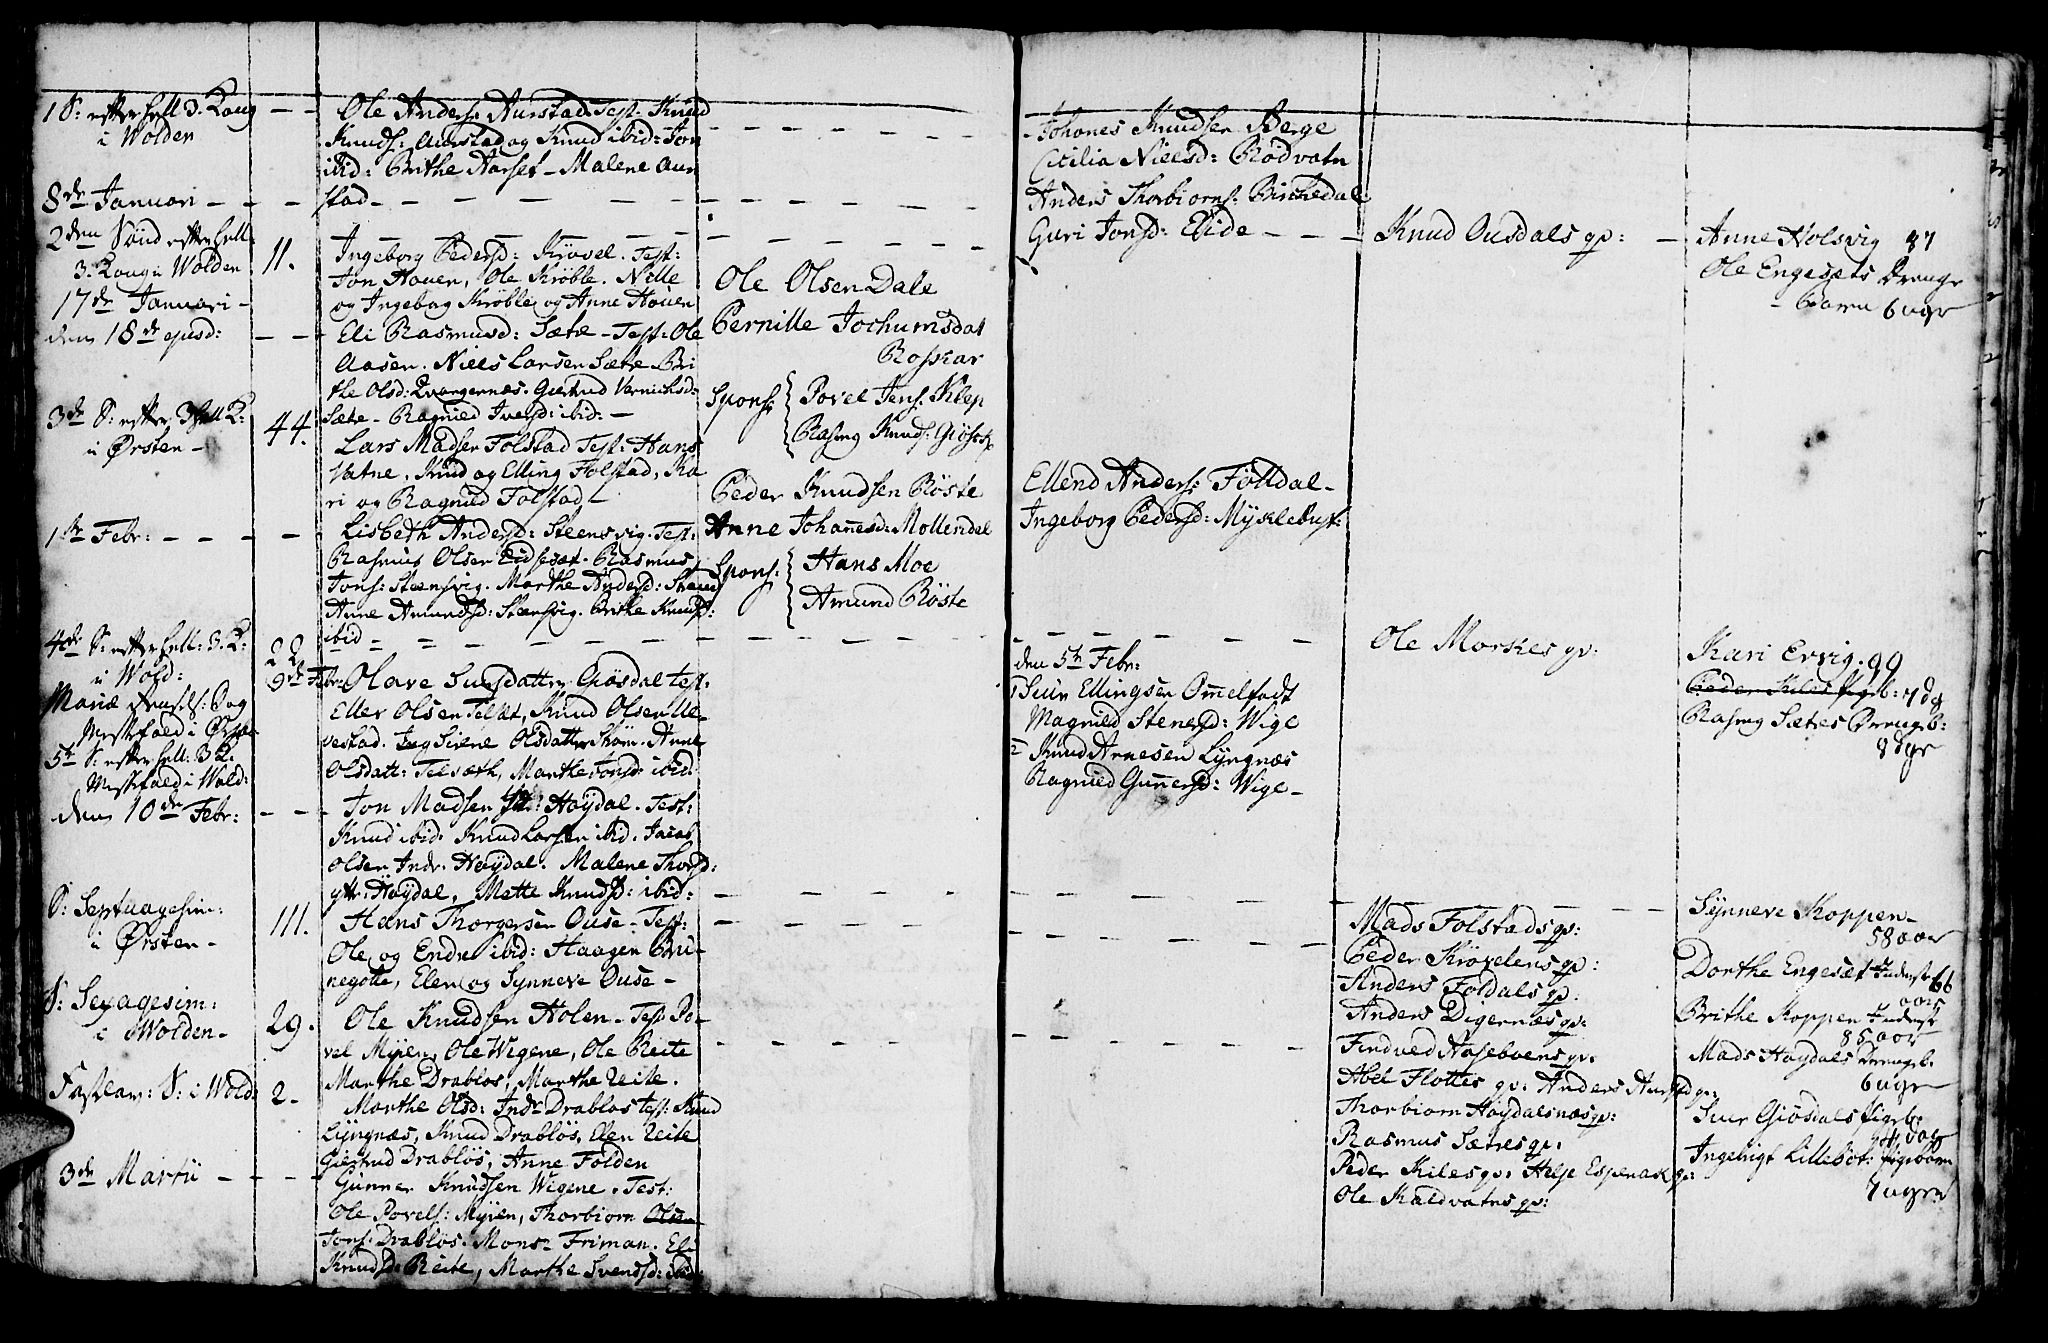 1 S: efter Hell 3. Kong
i Wolden
8de Januari
2den Sönd efter Hell:
3. Kong i Wolden
17de Januari
den 18de ejusd:
3de S: efter 3 Hell K:
i Ørsten
1ste Febr:
4de S: efter Hell: 3. K:
i Wold:
Mariæ Renselses: Dag
Meskefald i Ørsten
5te S: efter Hell: 3 K.
Meskefald i Wold:
den 10de Febr:
S: Septuagesim:
i Ørsten
S: Sexagesim:
i Wolden
Fastlav: S: i Wold:
3de Martii
11.
44.
22
9de Febr:
111.
29.
2
Ole Anders: Aurstad Test: Knud
Knuds: Aurstad og Knud ibid: Jon
ibid: Brithe Aarset Malene Aur
stad
Ingeborg Pedersd: Krövel. Test:
Jon Houen, Ole Kröble. Nille
og Ingebog Kröble og Anne Houen
Eli Rasmusd: Sæte Test: Ole
Aasen. Niels Larsen Sæte Bri
the Olsd: Qvangernæs. Giertrud Vernichsd:
Sæte Ragnied Iversd: ibid:
Lars Madsen Folstad Test: Hans
Vatne, Knud og Elling Folstad, Ka
ri og Ragnied Folstad
Lisbeth Andersd: Steensvig. Test:
Rasmus Olsen Eidseset. Rasmus
Jons: Steensvig. Marthe Andersd: Strand
Anne Amundsd: Steensvig. Brithe Knudsd:
ibid
Olave Siursdatter Giösdal test:
Eller Olsen Telset, Knud Olsen Ve
vestad. Ingeborg Sirene Olsdatter Strøm. Anne
Olsdatt: Telsæth, Marthe Jonsd: ibid:
Jon Madsen ytt: Høydal. Test:
Knud ibid. Knud Larsen ibid. Jacob
Olsen Indr. Høydal. Malene Thorsd:
ytt: Høydal, Mette Knudsd: ibid:
Hans Thorgersen Ouse Test:
Ole og Endre ibid: Haagen Bru
negotte, Elen og Synneve Ouse
Ole Knudsen Holen Test: Po
vel Myren, Ole Wigene, Ole Reite
Marthe Drablos, Marthe Reite.
Marthe Olsd: Indr Drablos test: Knud
Lyngnæs, Knud Drablös, Elen Reite
Giertrud Drablös, Anne Folden
Gunner Knudsen Wigene. Test:
Ole Povels: Myren, Thorbiorn Olsen
Jons: Drablös. Mons: Friman. Eli
Knudsd: Reite, Marthe Svendsd: ibid:
Ole Olsen Dale
Pernille Jochumsdat
Rosskar
Spons: Povel Jens: Klep
Rasmg Knuds: Giösok
Peder Knudsen Röste
Anne Johanesd: Mollendal
Spons: Hans Moe
Amund Röste
Johanes Knudsen Berge
Cicilia Nielsd: Rödvatn
Anders Thorbiorns: Birchedal
Guri Jonsd: Eide
Ellend Anders: Folldal
Ingeborg Pedersd: Myklebust:
den 5te Febr:
1 Siur Ellingsen Ommelstadt
Magnied Stenersd: Wige
2 Knud Arnesen Lyngnæs
Ragnied Gunnersd: Wige
Knud Ousdals gv:
Ole Morkes gv:
Mads Folstads gv:
Peder Krövelens gv:
Anders Foldals gv:
Anders Digernæs gv:
Findved Hasebøens gv:
Abel Flottes gv: Anders Aurstad gv:
Thorbiorn Høydalsnæs gv:
Rasmus Sætres gv:
Peder Kiles gv: Helje Espenak gv:
Ole Kaldvatns gv:
Anne Holsvig 87
Ole Engesets Drenge
barn 6 uger
Kari Ervig. 99
Peder Kiles Pigeb: 7 dg
Rasmg Sætes Drengeb:
8 dge
Synneve Koppen
58 aar
Dorthe Engeset Inderste 66
aar
Brithe Koppen Inderst
85 aar
Mads Høydals Drengeb:
6 uger
Siur Giösdals Pigeb:
14 dag
Ingebrigt Lillebøe: Pigebarn
7 uger